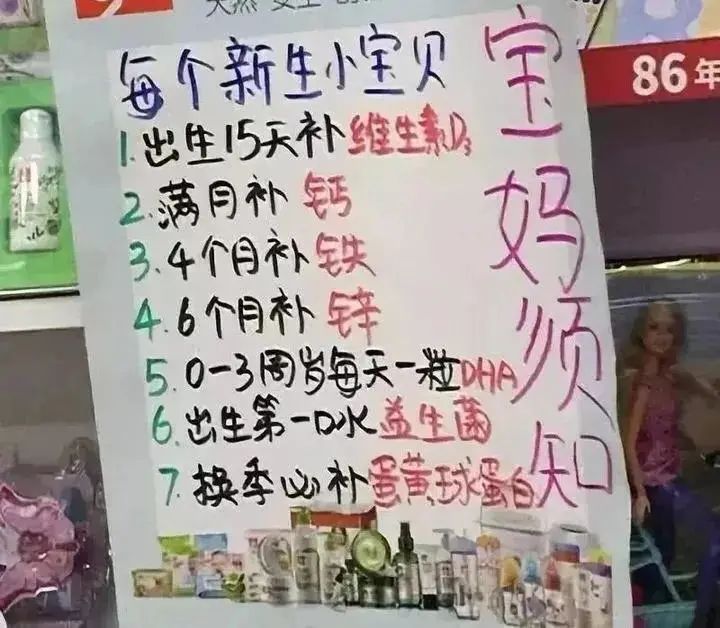 每个新生小宝贝
1.出生15天补维生素D3
2.满月补钙
3.4个月补铁
4.6个月补锌
5.0-3周岁每天一粒DHA
6.出生第一口水益生菌
7.换季必补蛋黄球蛋白
宝妈须知
86年